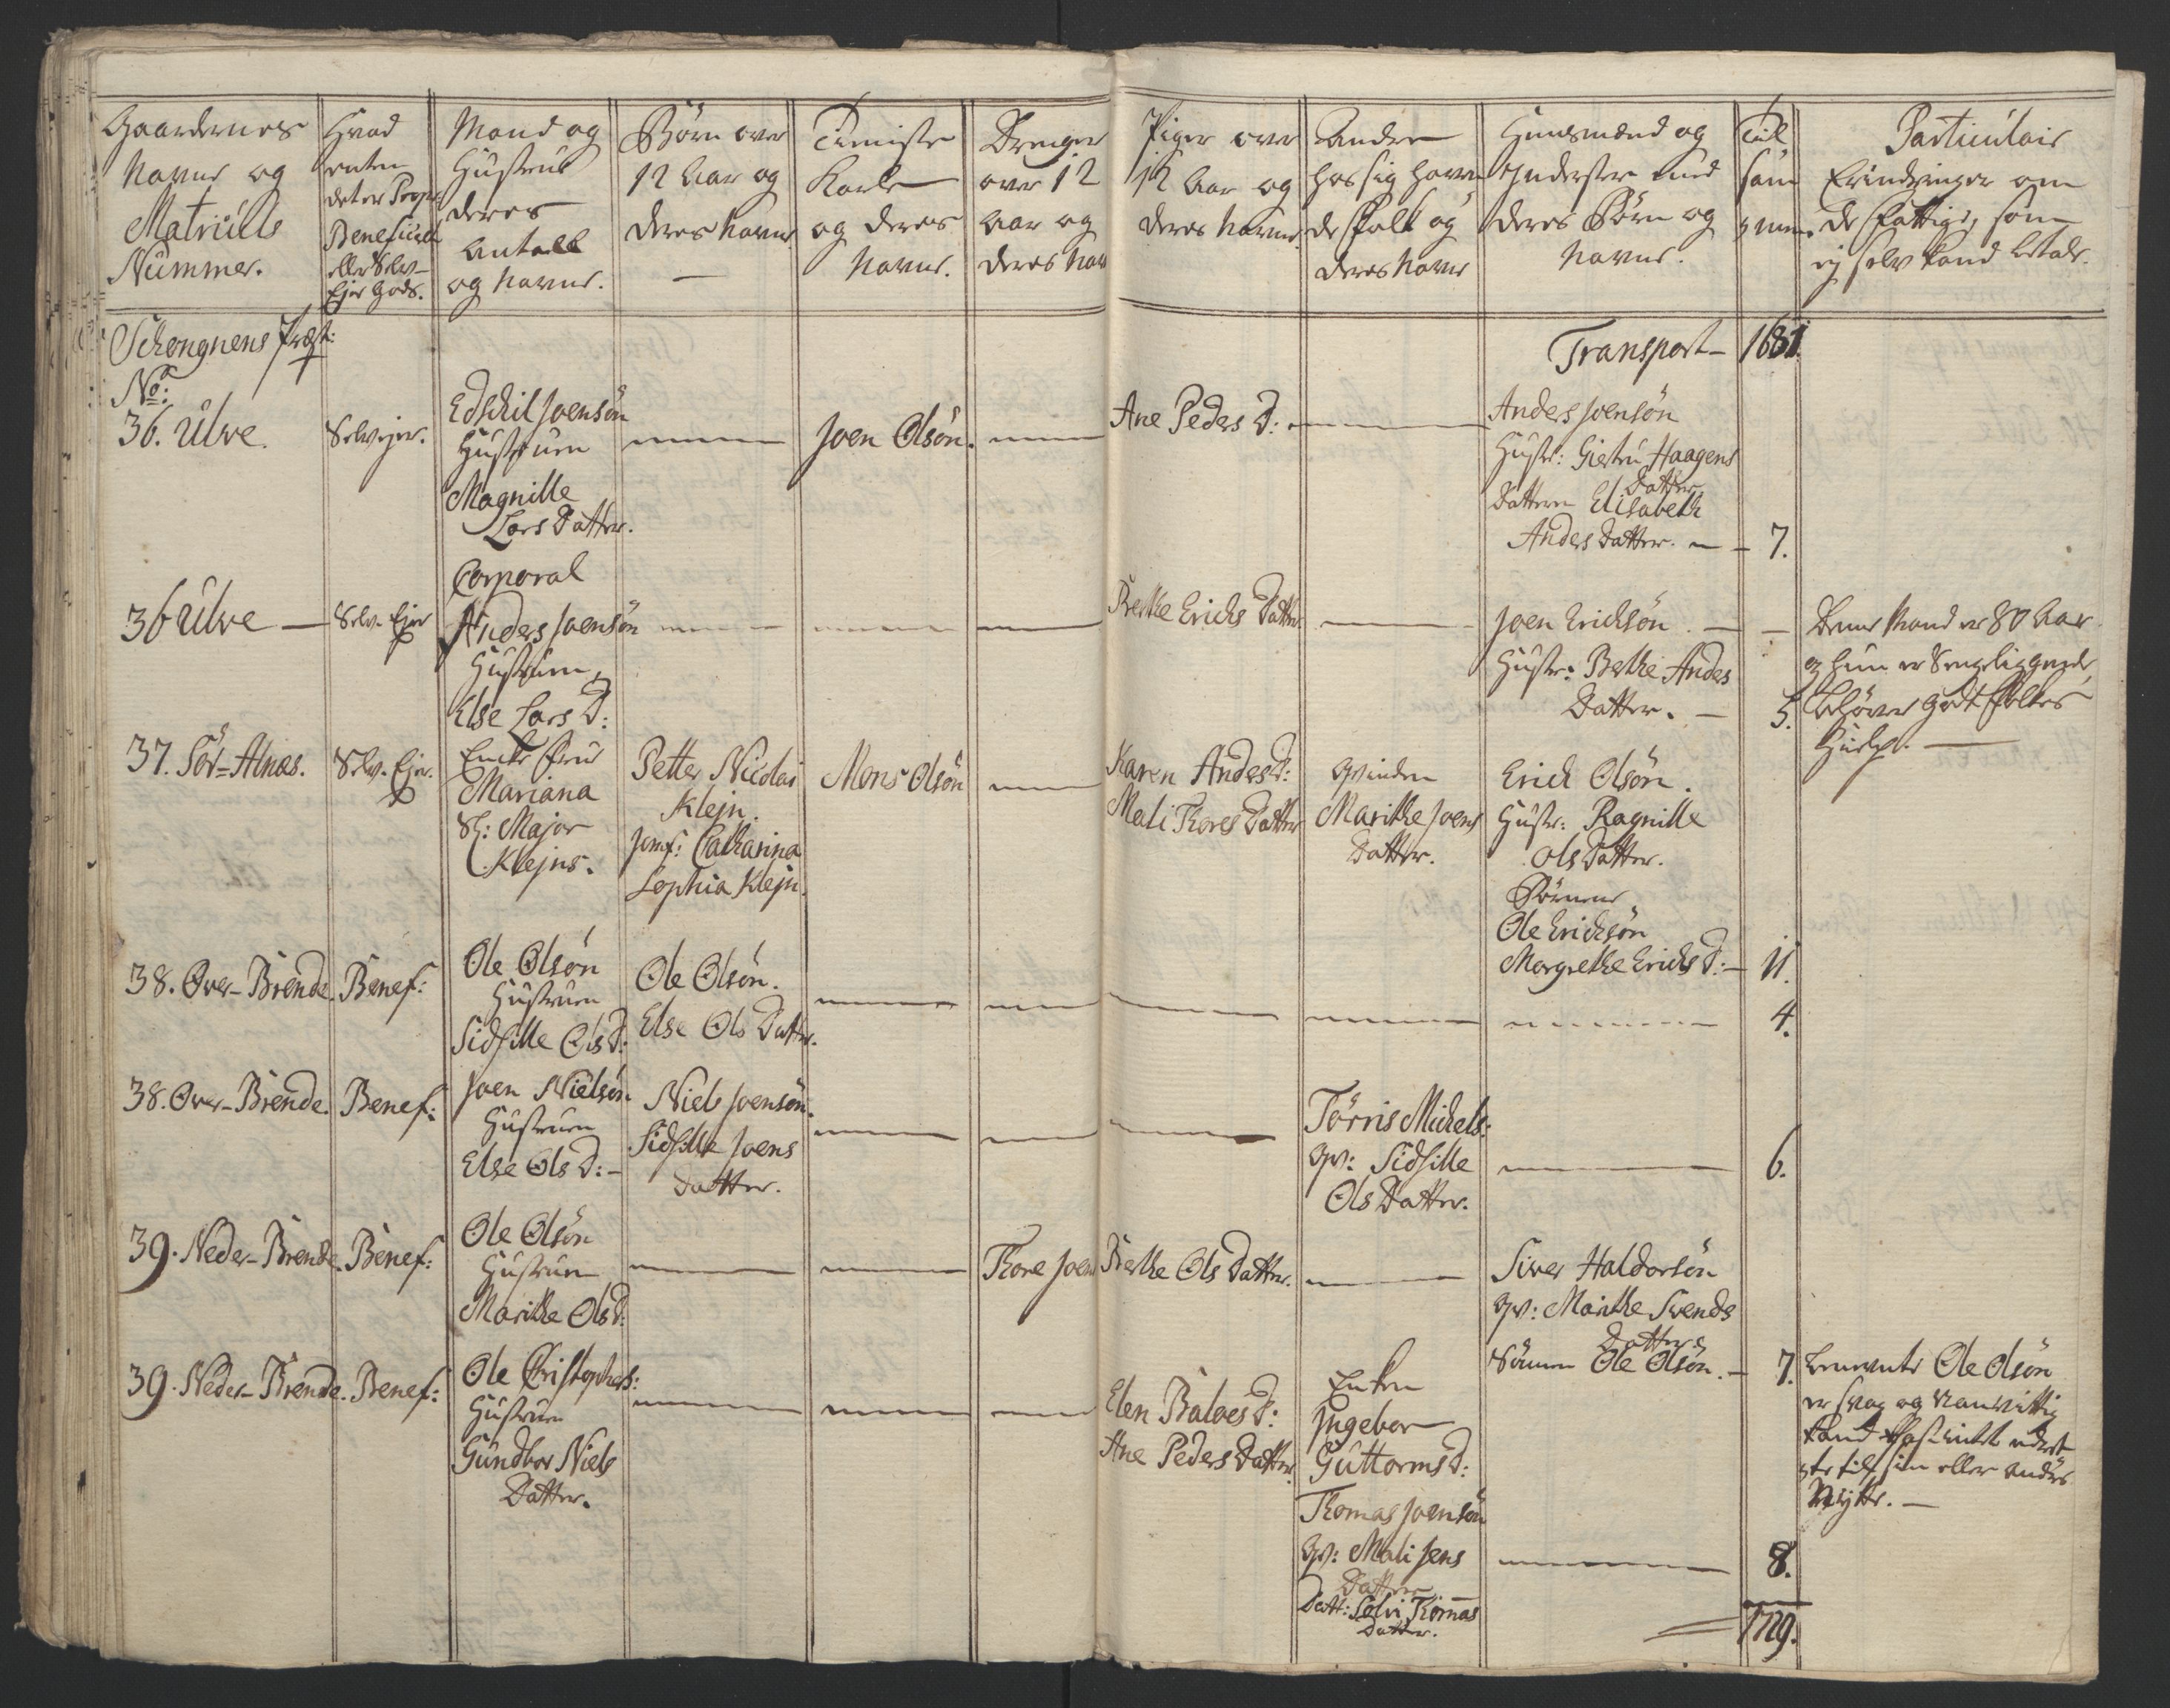 Gaardernes
Navne og
Matriculs
Nummer.
Hvad
enten
det er Propr
Beneficeret
eller Selv-
Ejer Gods.
Mand og
Hustrue
deres
Antall
og Navne.
Børn over
12 Aar og
deres Navne
Tieniste
Karle
og deres
Navne.
Drenger
over 12
Aar og
deres Nav
Piger over
12 Aar og
deres Navne
Andre
hos sig haven
de Folk og
deres Navne
Huusmænd og
Inderster med
deres Børn og
Navne.
Til
sam
men.
Particulair
Erindringer om
de Fattige, som
ej selv kand betale.
Schongnens Præst:
No:
Transport - 1681.
36. Ulve.
Selvejer.
Edschil Joensøn
Hustruen
Magnille
Lars Datter.
Joen Olsøn.
Ane Peders D:
Anders Joensøn
Hustr: Giertru Haagens
Datter
Datteren Elisabeth
Anders Datter. - 7.
36 Ulve -
Selv-Ejer
Corporal
Anders Joensøn
Hustruen
Else Lars D:
Berthe Erichs Datter
Joen Erichsøn.
Hustr: Berthe Anders
Datter. - 5.
Denne Mand er 80 Aar
og hun er Sengeliggende,
behøver godt Folkes
Hielp.
37. Sør-Alnæs.
Selv-Ejer.
Encke Frue
Mariana
Sl: Major
Klejns.
Petter Nicolai
Klejn.
Jomf: Catharina
Sophia Klejn.
Mons Olsøn
Karen Anders D:
Mali Thores Datter
Qvinden
Marithe Joens
Datter.
Erich Olsøn.
Hustr: Ragnille
Ols Datter.
Børnene
Ole Erichsøn
Margrethe Erichs D: - 11.
38. Over-Brende.
Benef:
Ole Olsøn
Hustruen
Sidsille Ols D:
Ole Olsøn.
Else Ols Datter.
4.
38. Over-Brende.
Benef:
Joen Nielsøn
Hustruen
Else Ols D: -
Niels Joensøn.
Sidsille Joens
Datter.
Tørris Michels:
Qv: Sidsille
Ols Datter.
6.
39. Neder-Brende.
Benef:
Ole Olsøn
Hustruen
Marithe Ols D:
Thore Joens
Berthe Ols Datter.
Siver Haldorsøn
Qv: Marithe Svends
Datter
Sønnen Ole Olsøn. - 7.
Benevnte Ole Olsøn
er svag og vanvittig
kand  intet udret
te til sin eller andres
Nytte. -
39. Neder-Brende.
Benef:
Ole Christophers:
Hustruen
Gundbor Niels
Datter.
Elen Baloes D:
Ane Peders Datter
Enken
Ingebor
Guttorms D:
Thomas Joensøn
Qv: Mali Jens
Datter
Datt: Solvi Thomas
Datter.
8.
1729.